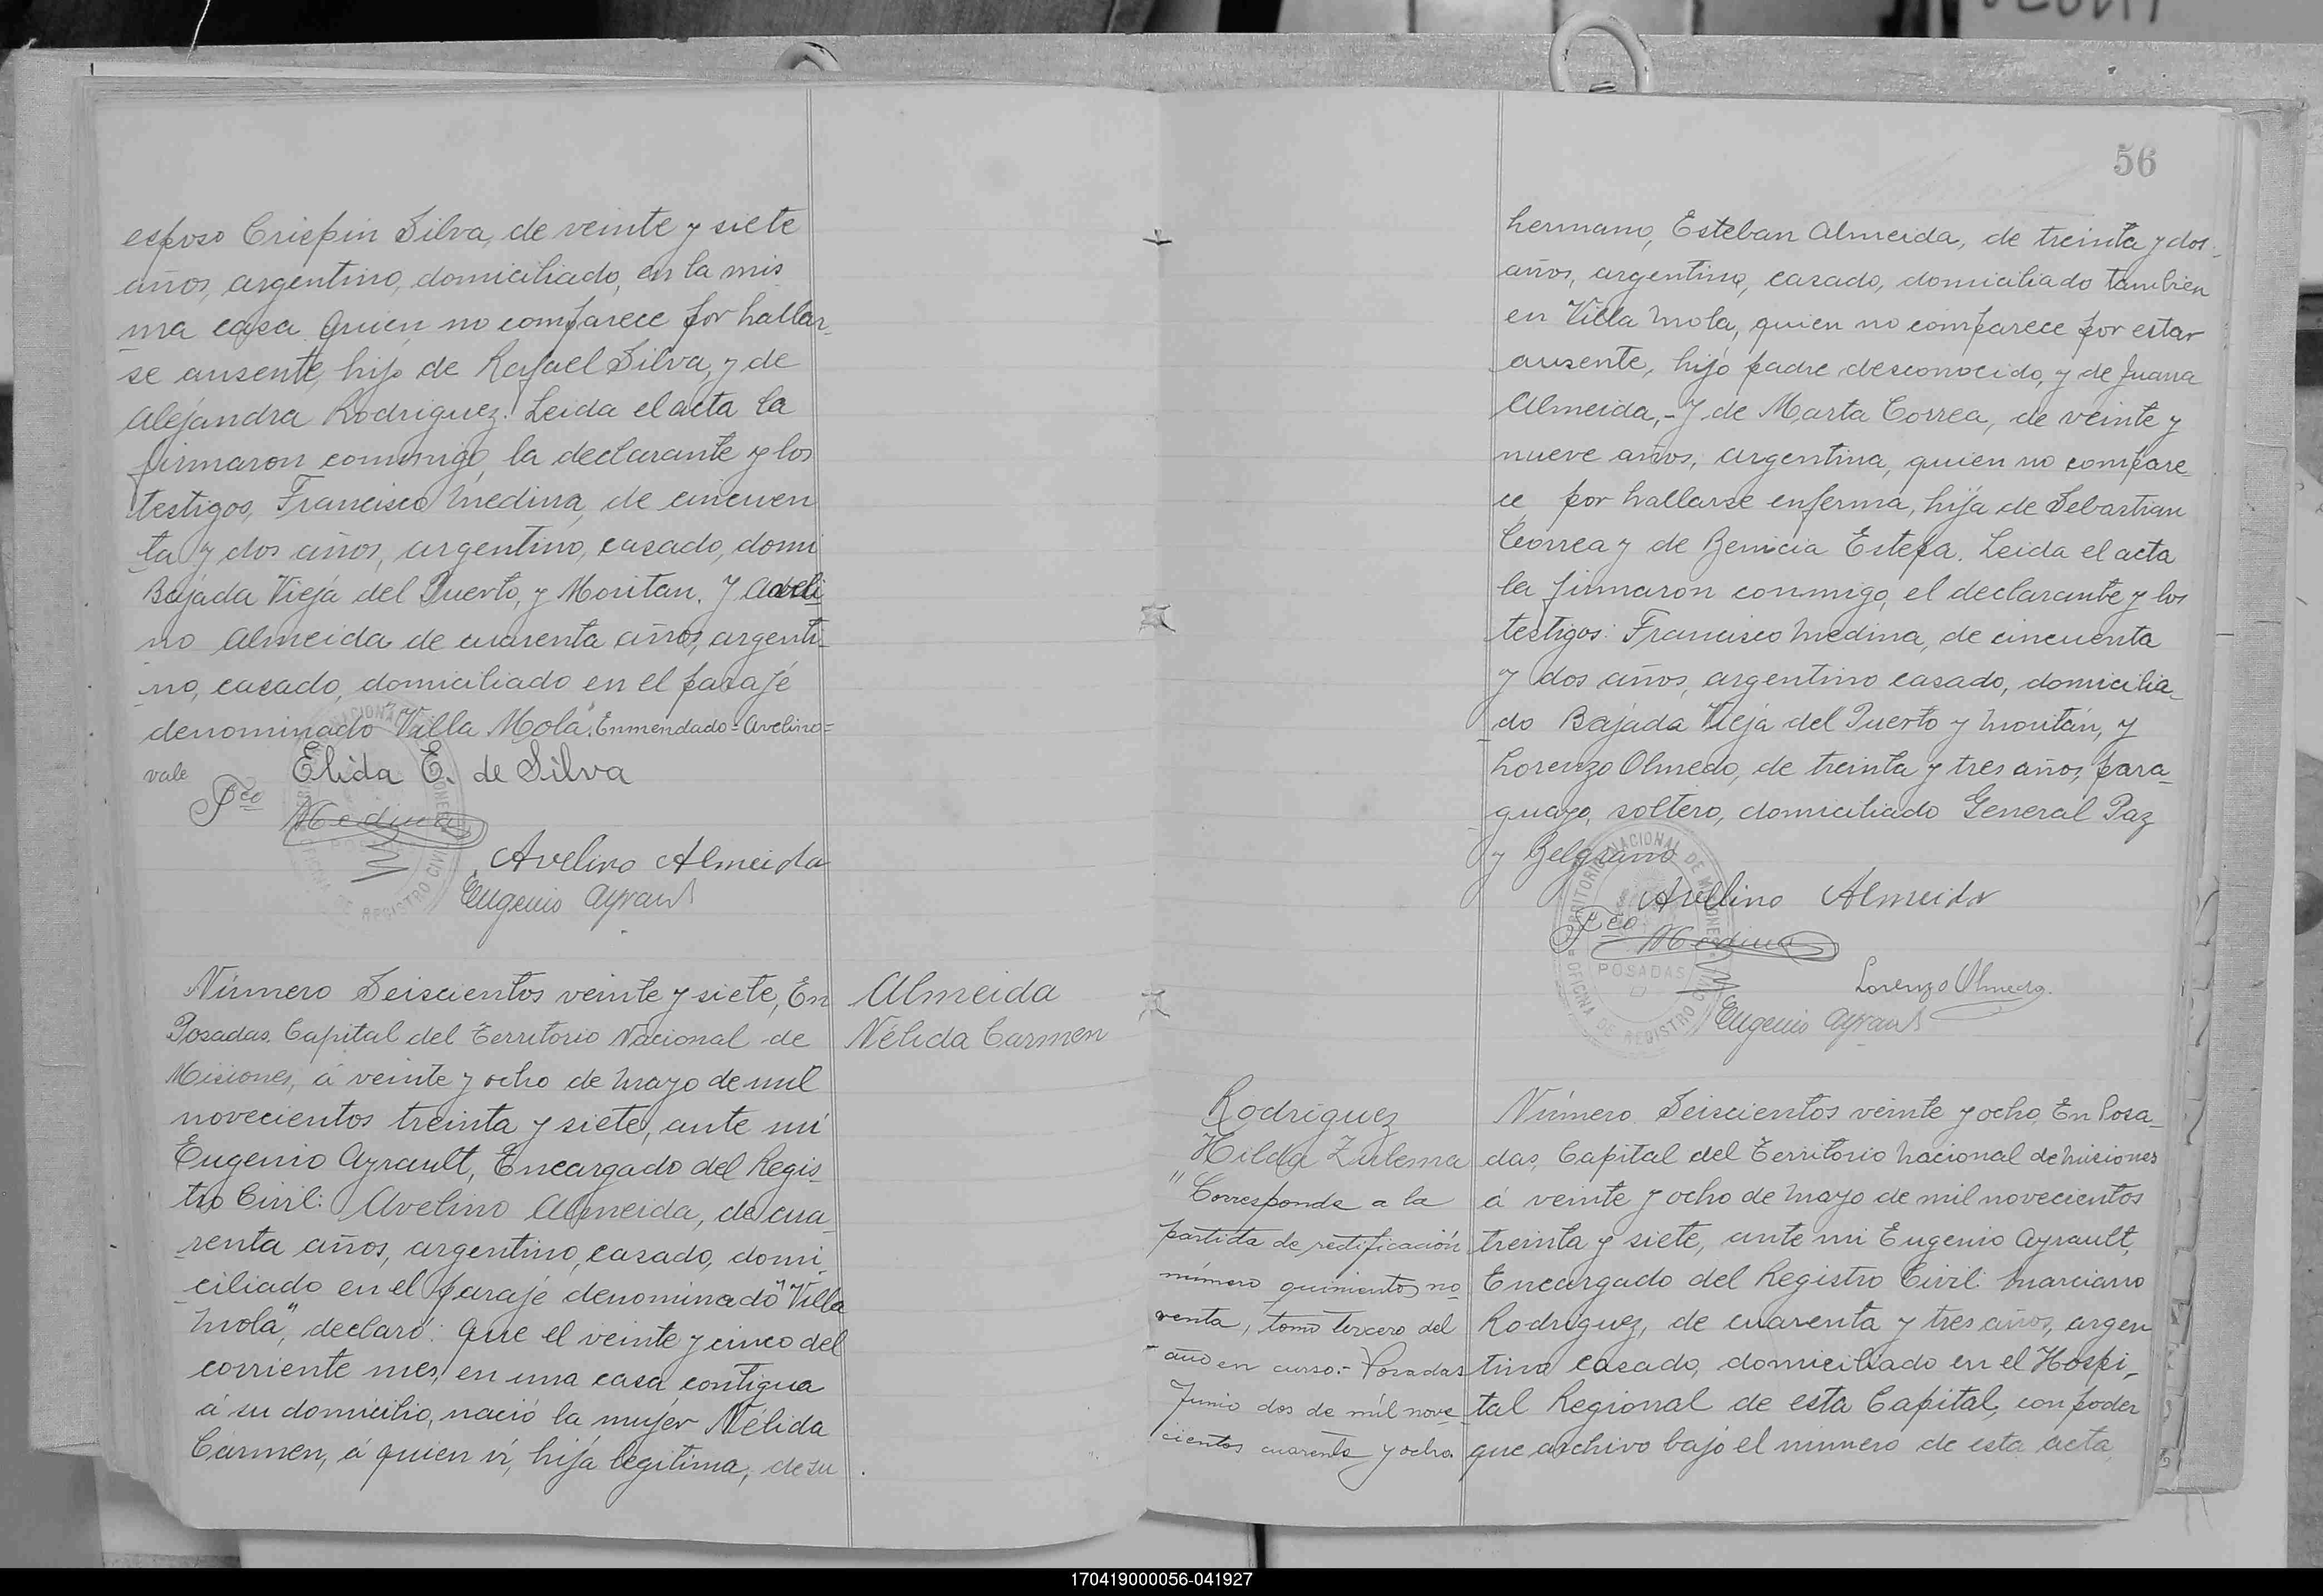 esposo Crispin Silva, de veinte y siete
años, argentino, domiciliado, en la mis
ma casa quien no comparece por hallar-
se ausente, hijo de Rafael Silva, y de
Alejandra Rodriguez. Leida el acta la
firmaron conmigo, la declarante y los
testigos, Francisco Medina, de cincuen
ta y dos años, argentino, casado, domi
Bajada Vieja del Puerto, y Moritan. Y Aveli
no Almeida de cuarenta años, argenti-
no, casado, domiciliado en el paraje
denominado "Villa Mola". Enmendado = Avelino =
vale
Elida E. de Silva
Fco
Medina
Avelino Almeida
Eugenio Ayrault
Número Seiscientos veinte y siete, En
Posadas, Capital del Territorio Nacional de
Misiones, á veinte y ocho de Mayo de mil
novecientos treinta y siete, ante mi
Eugenio Ayrault, Encargado del Regis-
tro Civil: Avelino Almeida, de cua
renta años, argentino, casado, domi
ciliado en el paraje denominado "Villa
Mola", declaró: Que el veinte y cinco del
corriente mes, en una casa contigua
á su domicilio, nació la mujer Nélida
Cármen, á quien ví, hija legitima, de su
Almeida
Nélida Carmen
56
hermano, Esteban Almeida, de treinta y dos
años, argentino, casado, domiciliado tambien
en Villa Mola, quien no comparece por estar
ausente, hijo padre desconocido, y de Juana
Almeida, - Y de Marta Correa, de veinte y
nueve años, argentina, quien no compare
ce por hallarse enferma, hija de Sebastian
Correa y de Benicia Estepa. Leida el acta
la firmaron conmigo, el declarante y los
testigos: Francisco Medina, de cincuenta
y dos años, argentino casado, domicilia-
do Bajada Vieja del Puerto y Moritán, y
Lorenzo Olmedo, de treinta y tres años, para-
guayo, soltero, domiciliado General Paz
y Belgrano
Avelino Almeida
Fco
Medina
POSADAS
Lorenzo Olmedo.
Eugenio Ayrault
Rodriguez
Hilda Zulema
"Corresponde a la
partida de rectificación
número quinientos no-
venta, tomo tercero del
año en curso.- Posadas
Junio dos de mil nove-
cientos cuarenta y ocho.
Número Seiscientos veinte y ocho, En Posa-
das, Capital del Territorio Nacional de Misiones
á veinte y ocho de Mayo de mil novecientos
treinta y siete, ante mi Eugenio Ayrault,
Encargado del Registro Civil: Marciano
Rodriguez, de cuarenta y tres años, argen
tino casado, domiciliado en el Hospi-
tal Regional de esta Capital, con poder
que archivo bajo el numero de esta acta,
170419000056-041927